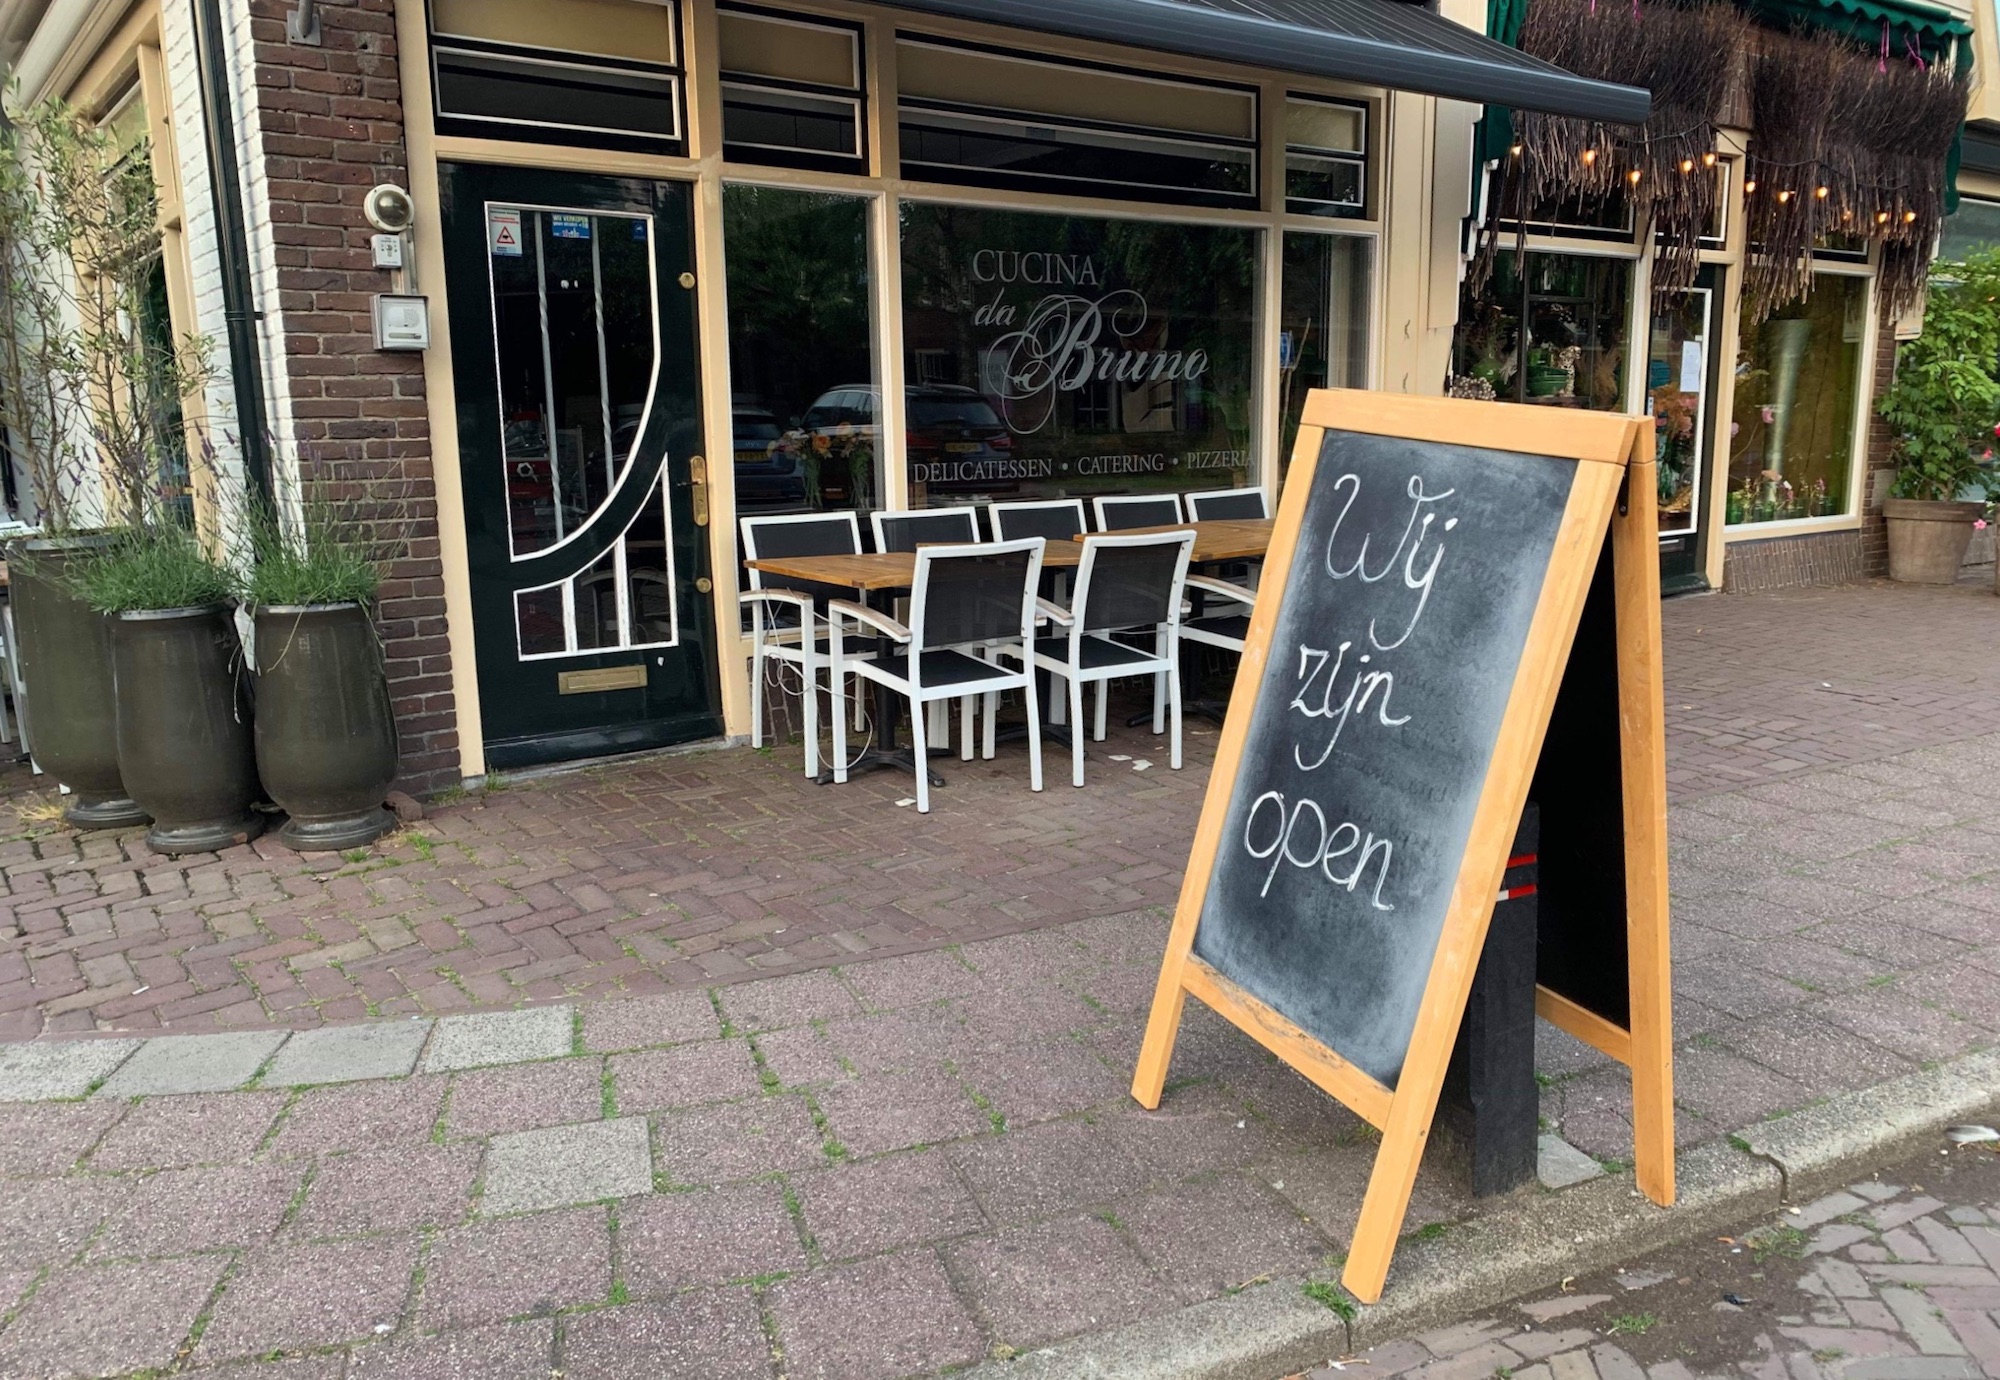 CUCINA
da Bruno
DELICATESSEN • CATERING • PIZZERIA
Wij
zijn
open